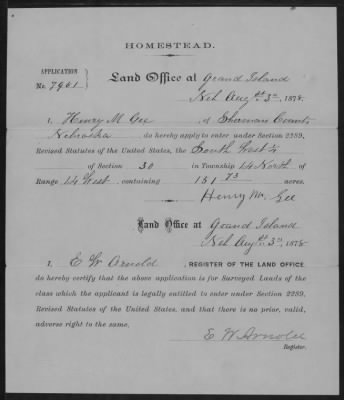 HOMESTEAD.
APPLICATION
No. 7961
Land Office at Grand Island
Neb Augst 3rd, 1878.
I, Henry M Gee, of Sherman County
Nebraska do hereby apply to enter under Section 2289,
Revised Statutes of the United States, the South West 1/4
of Section 30 in Township 14 North of
Range 14 West, containing 151 73 acres.
Henry M. Gee
Land Office at Grand Island
Neb Augst 3rd, 1878
I, E W Arnold, REGISTER OF THE LAND OFFICE,
do hereby certify that the above application is for Surveyed Lands of the
class which the applicant is legally entitled to enter under Section 2289,
Revised Statutes of the United States, and that there is no prior, valid,
adverse right to the same.
E W Arnold
Register.